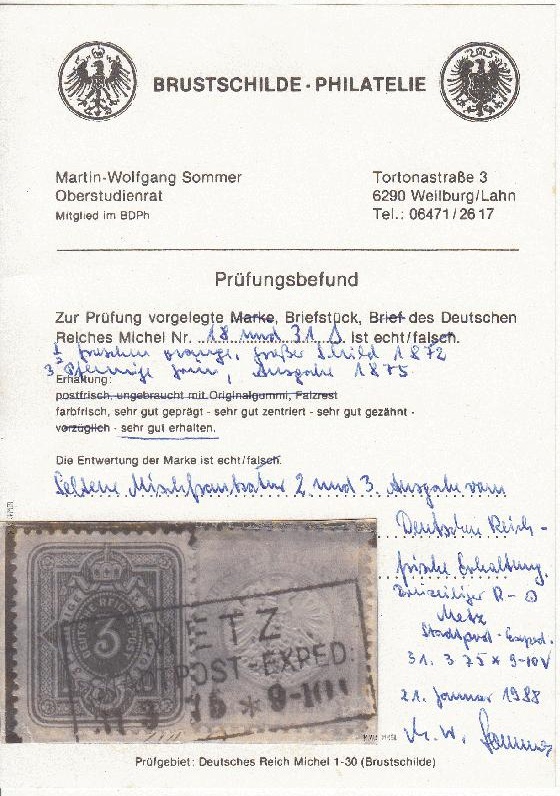 BRUSTSCHILDE - PHILATELIE
Martin-Wolfgang Sommer
Oberstudienrat
Mitglied im BDPh
Tortonastraße 3
6290 Weilburg/Lahn
Tel.: 06471/2617
Prüfungsbefund
Zur Prüfung vorgelegte Marke, Briefstück, Brief des Deutschen
Reiches Michel Nr. 18 und 31 ist echt/falsch.
½ Groschen orange, großer Schild 1872
3 Pfennige grün, Ausgabe 1875
Erhaltung:
postfrisch, ungebraucht mit Originalgummi, Falzrest
farbfrisch, sehr gut geprägt - sehr gut zentriert - sehr gut gezähnt -
vorzüglich - sehr gut erhalten.
Die Entwertung der Marke ist echt/falsch.
Seltene Mischfrankatur 2 und 3. Ausgabe vom
Deutschen Reich -
frische Erhaltung.
Dreizeiliger R-
Metz
Stadtpost-Exped.
31. 3 75 * 9-10 V
21. Januar 1988
M. W. Sommer
DEUTSCHE REICHS-POST
3
METZ
STADTPOST-EXPED:
31 3 75 * 9-10
Prüfgebiet: Deutsches Reich Michel 1-30 (Brustschilde)